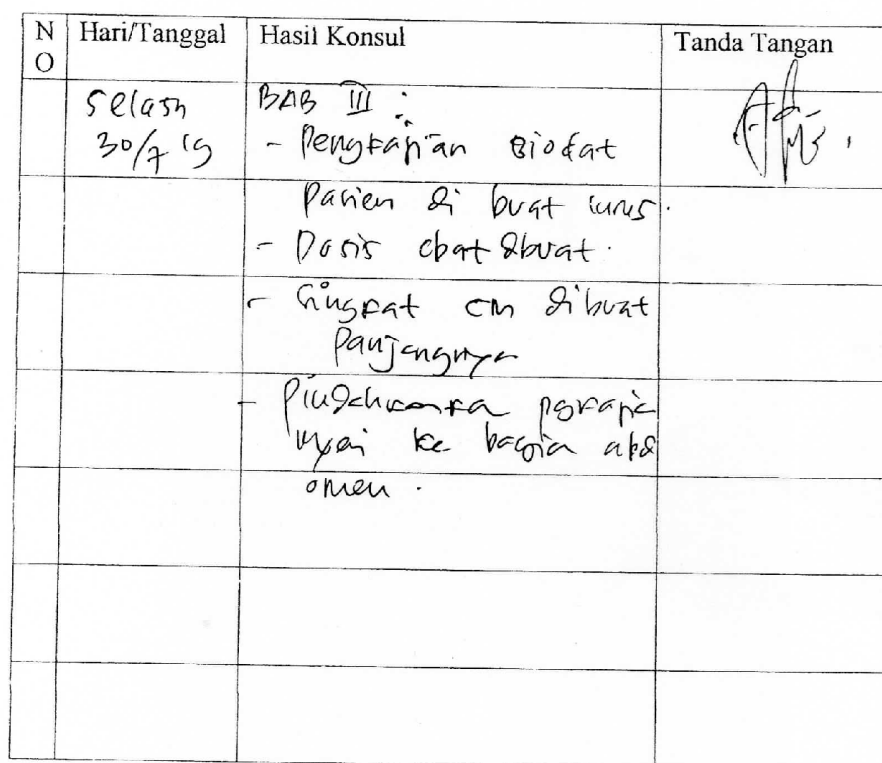 N
O
Hari/Tanggal
Hasil Konsul
Tanda Tangan
Selasa
30/7 '19
BAB III :
- Pengkajian Biodat
Pasien di buat lurus.
- Dosis obat dibuat.
- Singkat cm dibuat
panjangnya
- Pindahkan
nyeri ke bagian abd
omen.